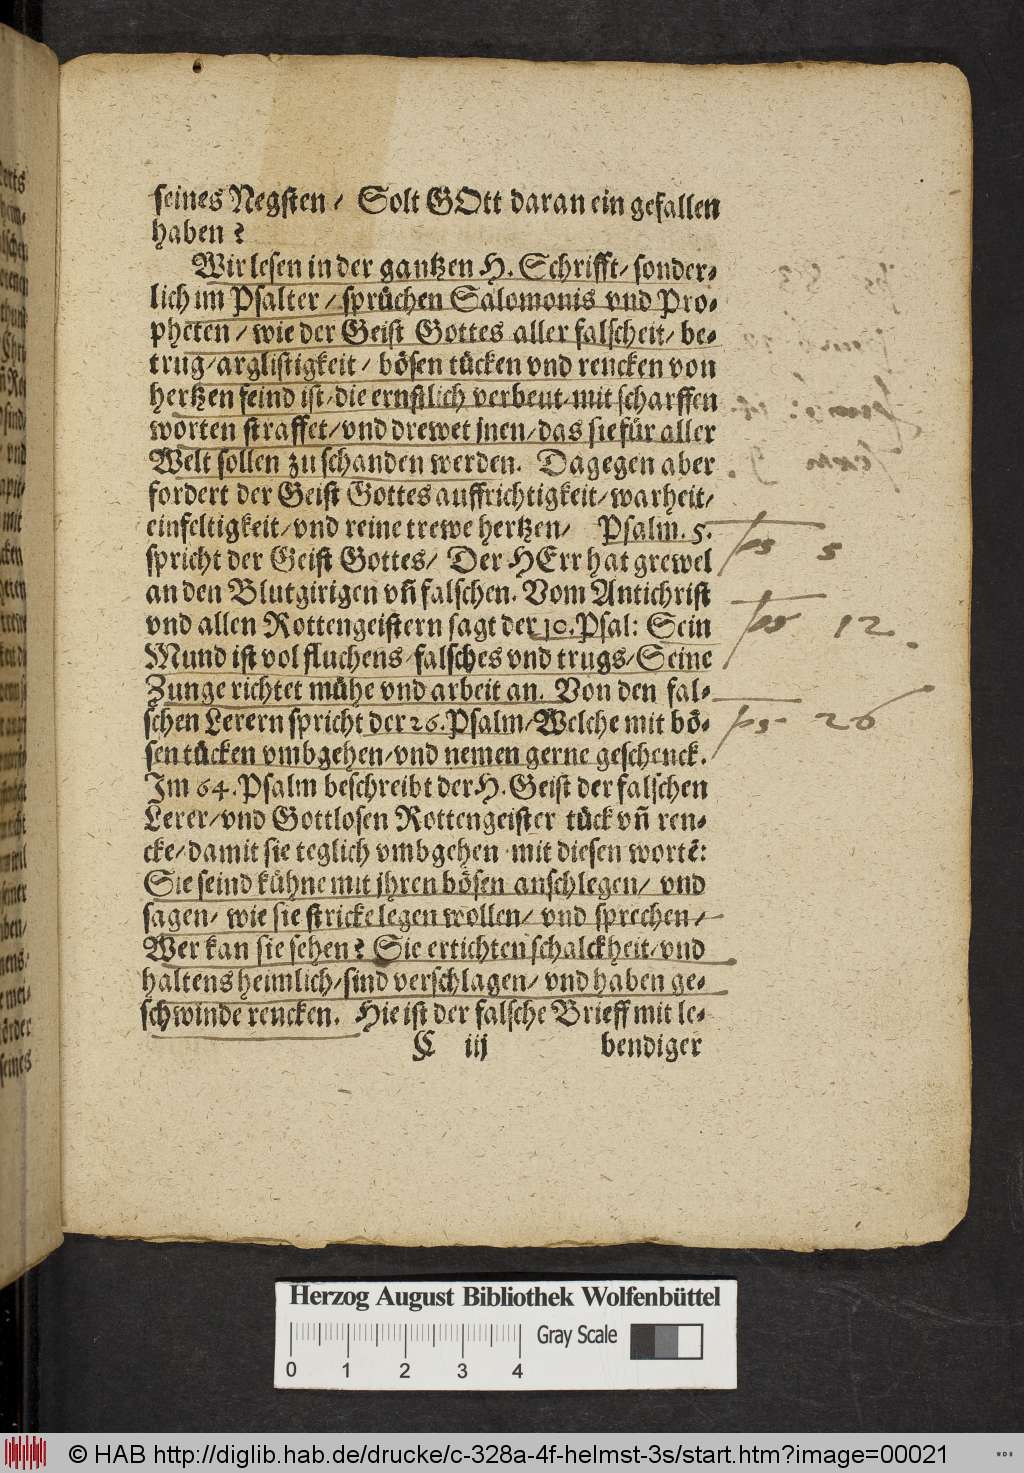 seines Negsten / Solt GOtt daran ein gefallen
haben?
Wir lesen in der gantzen H. Schrifft / sonder-
lich im Psalter / sprüchen Salomonis vnd Pro-
pheten / wie der Geist Gottes aller falscheit / be-
trug / arglistigkeit / bösen tücken vnd reucken von
hertzen feind ist / die ernstlich verbeut / mit scharffen
worten straffet / vnd drewet jnen / das sie für aller
Welt sollen zu schanden werden. Dagegen aber
fordert der Geist Gottes auffrichtigkeit / warheit /
einfeltigkeit / vnd reine trewe hertzen / Psalm. 5.
spricht der Geist Gottes / Der HErr hat grewel
an den Blutgirigen vñ falschen. Vom Antichrist
vnd allen Rottengeistern sagt der 10. Psal: Sein
Mund ist vol fluchens / falsches vnd trugs / Seine
Zunge richtet mühe vnd arbeit an. Von den fal-
schen Lerern spricht der 26. Psalm / Welche mit bö-
sen tücken vmbgehen / vnd nemen gerne geschenck.
Im 64. Psalm beschreibt der H. Geist der falschen
Lerer / vnd Gottlosen Rottengeister tück vñ ren-
cke / damit sie teglich vmbgehen mit diesen wortẽ:
Sie seind kühne mit jhren bösen anschlegen / vnd
sagen / wie sie stricke legen wollen / vnd sprechen /
Wer kan sie sehen? Sie ertichten schalckheit / vnd
haltens heimlich / sind verschlagen / vnd haben ge-
schwinde reucken. Hie ist der falsche Brieff mit le-
C iij bendiger
ps 5
ps 12
ps 26
Herzog August Bibliothek Wolfenbüttel
Gray Scale
0 1 2 3 4
© HAB http://diglib.hab.de/drucke/c-328a-4f-helmst-3s/start.htm?image=00021